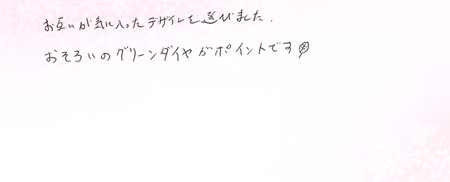 お互いが気に入ったデザインを選びました.
おそろいのグリーンダイヤがポイントです